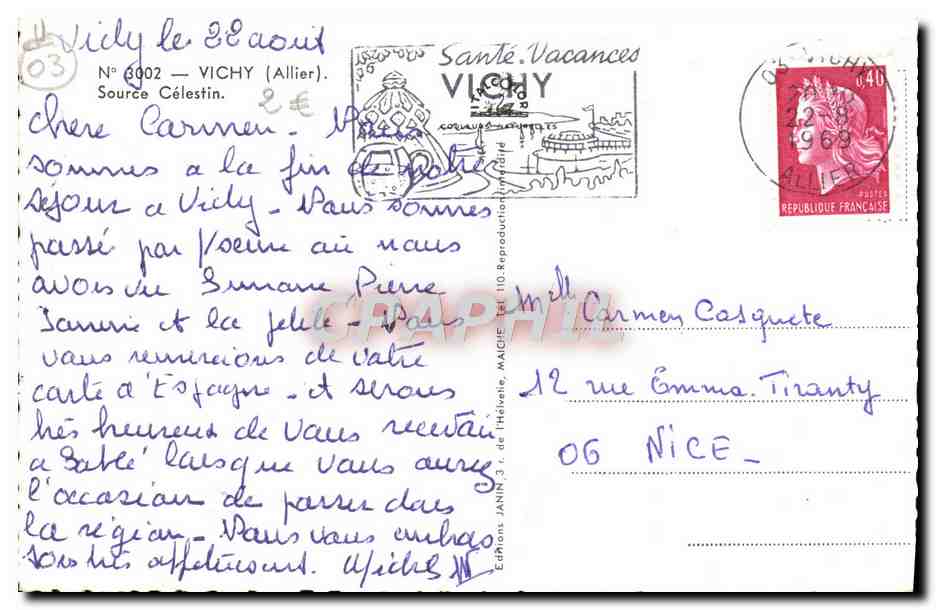 Vichy le 22 août
03
N° 3002 — VICHY (Allier).
Source Célestin.
2 €
Santé. Vacances
VICHY
VITALCOLOR
COULEURS NATURELLES
03 VICHY
22-8
1969
ALLIER
0,40
POSTES
REPUBLIQUE FRANÇAISE
chère Carmen - Nous
sommes a la fin de notre
séjour a Vichy - Nous sommes
passé par où nous
avons vu Simone Pierre
et la petite - Nous
vous remercions de votre
carte d'Espagne - et serons
très heureux de vous recevoir
a Sablé lorsque vous aurez
l'occasion de passer dans
la région - Nous vous embras
sons très affectueus. Michel
Editions JANIN, 3 r. de l'Helvétie, MAICHE Tél. 110 - Reproduction interdite
CPAPHIL
Mlle Carmen Casquete
12 rue Emma. Tiranty
06 NICE -